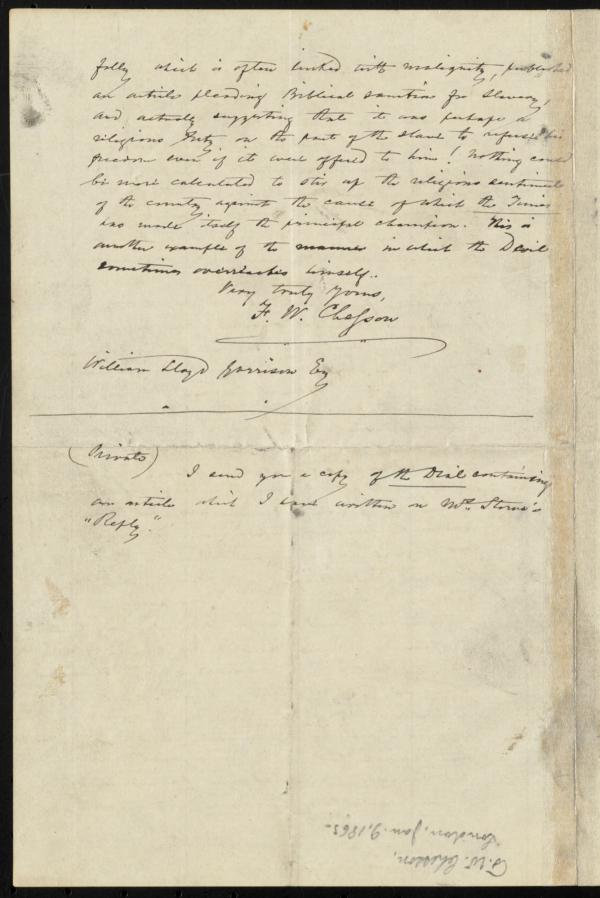 folly which is often linked with malignity, published
an article pleading Biblical sanction for slavery,
and actually suggesting that it was perhaps a
religious duty on the part of the slave to refuse his
freedom even if it were offered to him! Nothing could
be more calculated to stir up the religious sentiment
of the country against the cause of which the Times
has made itself the principal champion. This is
another example of the manner in which the Devil
sometimes overreaches himself.
Very truly Yours,
F. W. Chesson
William Lloyd Garrison Esq
(Private)
I send you a copy of the Dial containing
an article which I have written on Mrs. Stowe's
"Reply".
F. W. Chesson,
London, Jan. 9, 1863.